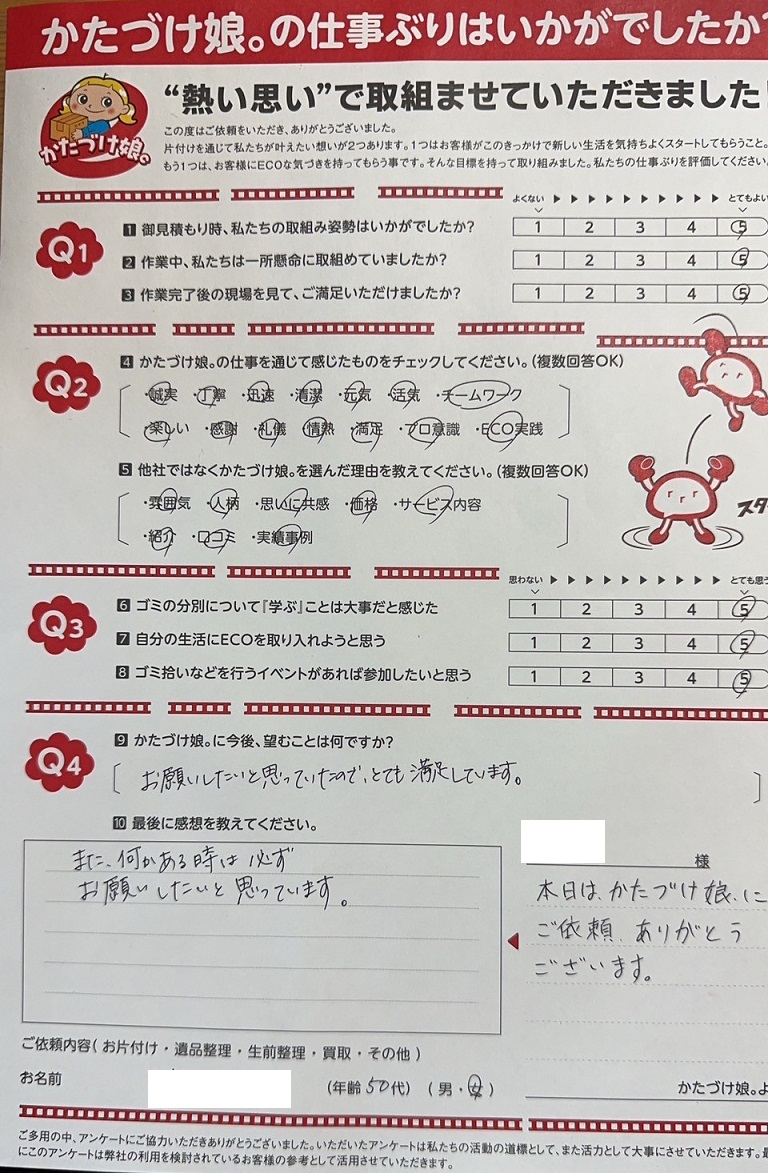 かたづけ娘。の仕事ぶりはいかがでしたか?
かたづけ娘。
“熱い思い”で取組ませていただきました!
この度はご依頼をいただき、ありがとうございました。
片付けを通じて私たちが叶えたい想いが2つあります。1つはお客様がこのきっかけで新しい生活を気持ちよくスタートしてもらうこと。
もう1つは、お客様にECOな気づきを持ってもらう事です。そんな目標を持って取り組みました。私たちの仕事ぶりを評価してください。
よくない ▶ ▶ ▶ ▶ ▶ ▶ ▶ ▶ ▶ ▶ とてもよい
Q1
1 御見積もり時、私たちの取組み姿勢はいかがでしたか? 1 2 3 4 5
2 作業中、私たちは一所懸命に取組めていましたか? 1 2 3 4 5
3 作業完了後の現場を見て、ご満足いただけましたか? 1 2 3 4 5
Q2
4 かたづけ娘。の仕事を通じて感じたものをチェックしてください。(複数回答OK)
・誠実 ・丁寧 ・迅速 ・清潔 ・元気 ・活気 ・チームワーク
・楽しい ・感謝 ・礼儀 ・情熱 ・満足 ・プロ意識 ・ECO実践
5 他社ではなくかたづけ娘。を選んだ理由を教えてください。(複数回答OK)
・雰囲気 ・人柄 ・思いに共感 ・価格 ・サービス内容
・紹介 ・口コミ ・実績事例
スタ
思わない ▶ ▶ ▶ ▶ ▶ ▶ ▶ ▶ ▶ ▶ とても思う
Q3
6 ゴミの分別について『学ぶ』ことは大事だと感じた 1 2 3 4 5
7 自分の生活にECOを取り入れようと思う 1 2 3 4 5
8 ゴミ拾いなどを行うイベントがあれば参加したいと思う 1 2 3 4 5
Q4
9 かたづけ娘。に今後、望むことは何ですか?
お願いしたいと思っていたので、とても満足しています。
10 最後に感想を教えてください。
また、何かある時は必ず
お願いしたいと思っています。
様
本日は、かたづけ娘。に
ご依頼、ありがとう
ございます。
ご依頼内容(お片付け・遺品整理・生前整理・買取・その他)
お名前 (年齢50代) (男・女)
かたづけ娘。よ
ご多用の中、アンケートにご協力いただきありがとうございました。いただいたアンケートは私たちの活動の道標として、また活力として大事にさせていただきます。最
にこのアンケートは弊社の利用を検討されているお客様の参考として活用させていただきます。